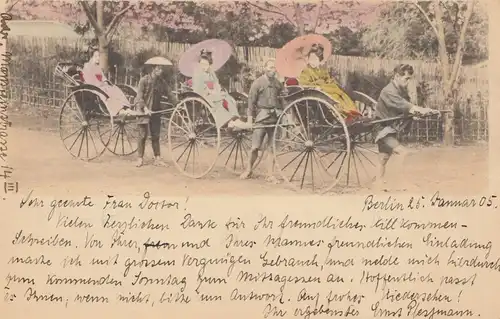 Berlin 25. Januar 05.
Sehr geehrte Frau Doctor!
Vielen herzlichen Dank für Ihr freundliches Willkommen-
Schreiben. Von Ihrer und Ihres Mannes freundlichen Einladung
mache ich mit grossem Vergnügen Gebrauch, und melde mich hierdurch
zum kommenden Sonntag zum Mittagessen an. Hoffentlich passt
es Ihnen; wenn nicht, bitte um Antwort. Auf frohes Wiedersehen!
Ihr ergebenster Ernst